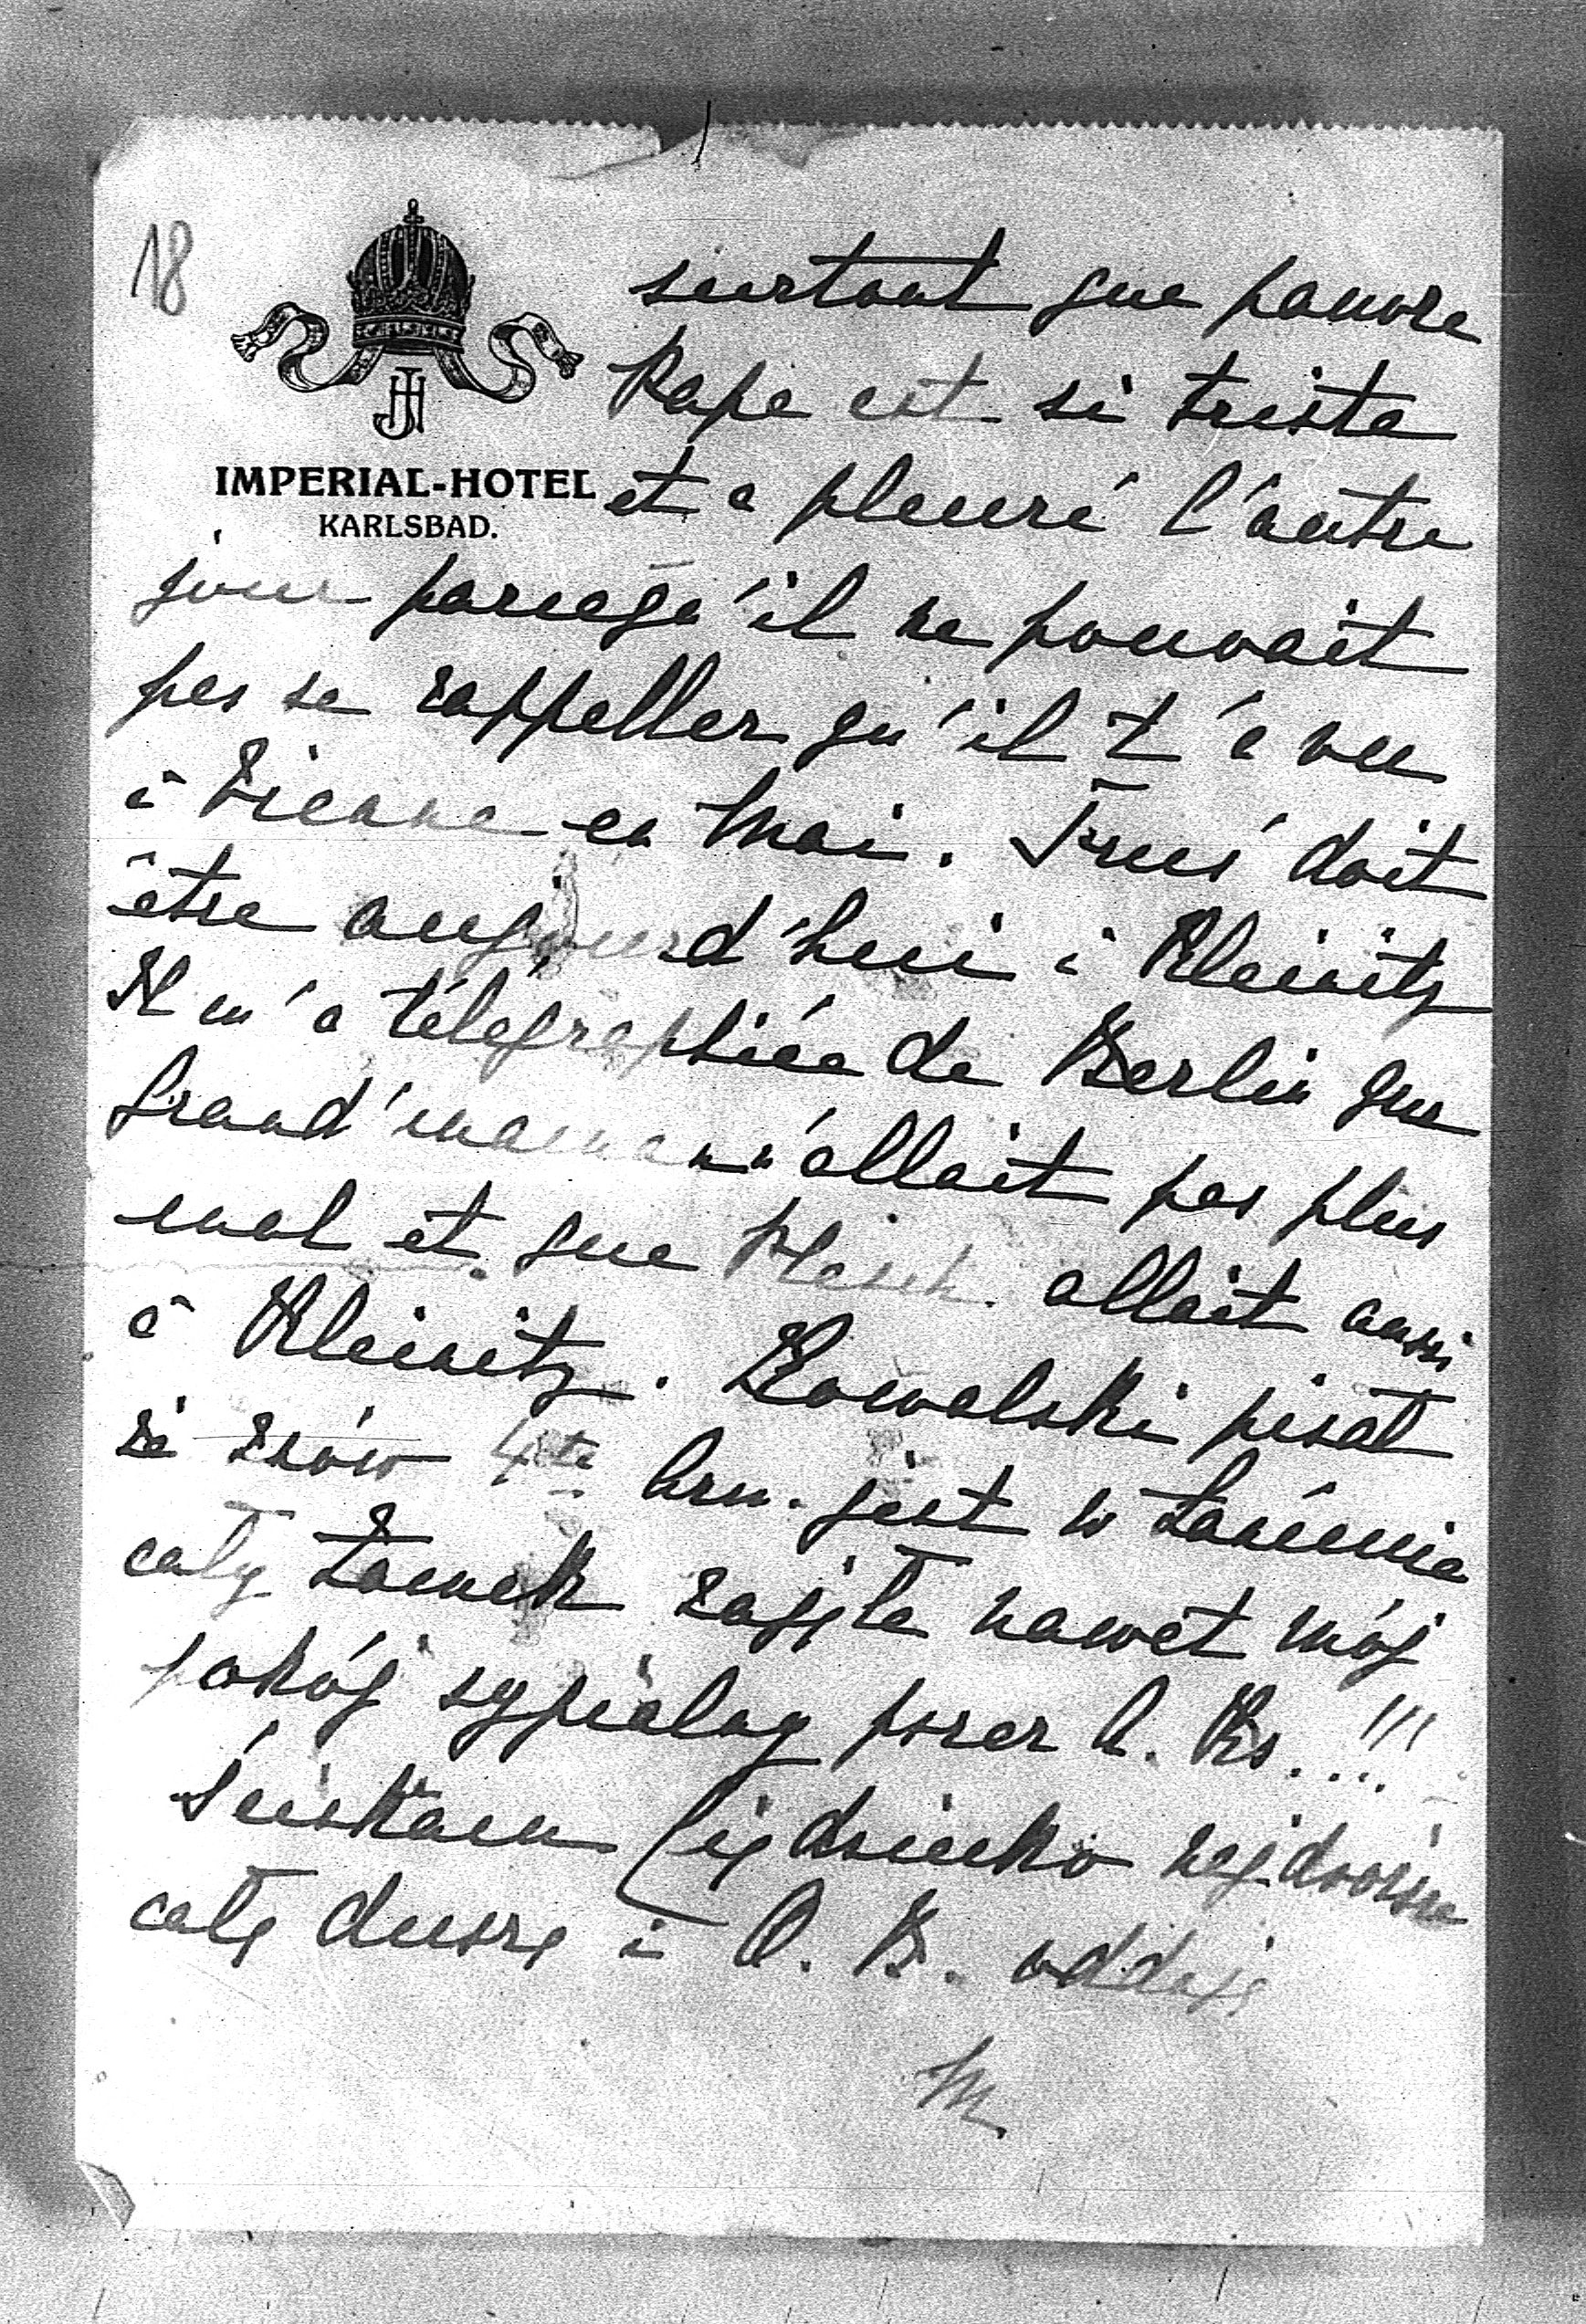 18
IMPERIAL-HOTEL
KARLSBAD.
surtout que pauvre
Papa est si triste
et a pleuré l'autre
jour parcequ'il ne pouvait
pas se rappeller qu'il t'a vu
à Vienne en Mai. Fruś doit
être aujourd'hui à Kleinitz
Il m'a télégraphiée de Berlin que
Grand'maman n'allait pas plus
mal et que allait aussi
à Kleinitz. Kowalski pisał
że znów 4ta brn. jest w Łańcucie
cały zamek zajęła nawet mój
pokój sypialny przez A. Ks...!!!
Ściskam Cię dziecko najdroższe
całą duszą i O. B. oddaję
M.